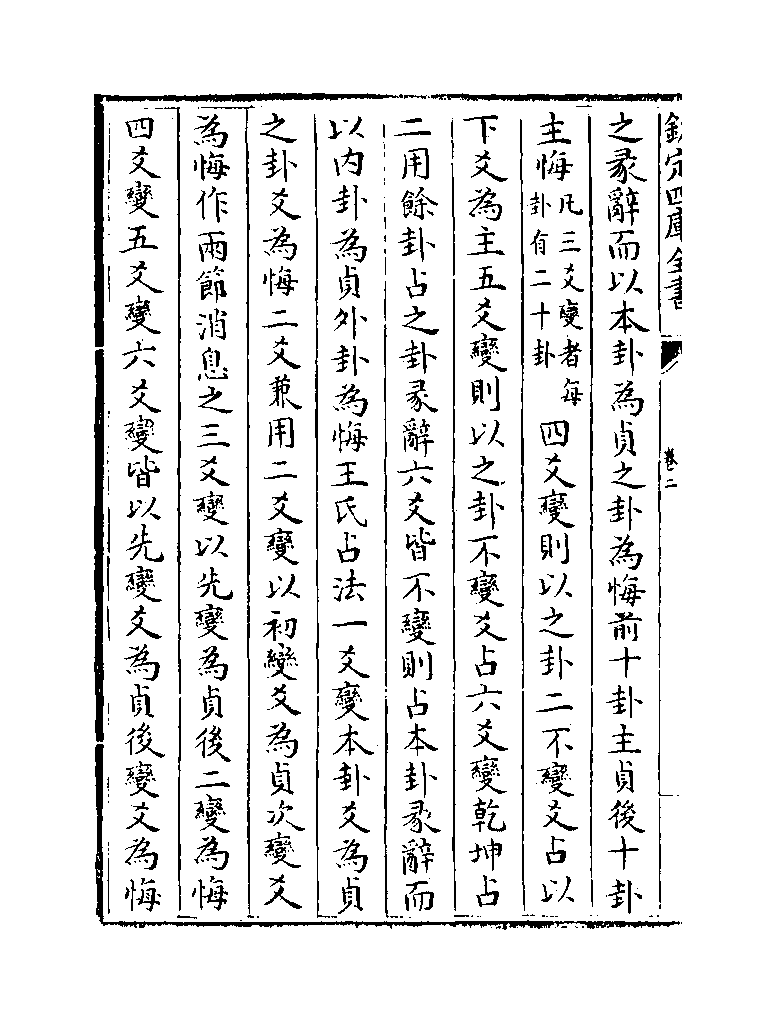 欽定四庫全書
卷二
之彖辭而以本卦為貞之卦為悔前十卦主貞後十卦
主悔凡三爻變者每卦有二十卦四爻變則以之卦二不變爻占以
下爻為主五爻變則以之卦不變爻占六爻變乾坤占
二用餘卦占之卦彖辭六爻皆不變則占本卦彖辭而
以内卦為貞外卦為悔王氏占法一爻變本卦爻為貞
之卦爻為悔二爻兼用二爻變以初變爻為貞次變爻
為悔作兩節消息之三爻變以先變為貞後二變為悔
四爻變五爻變六爻變皆以先變爻為貞後變爻為悔